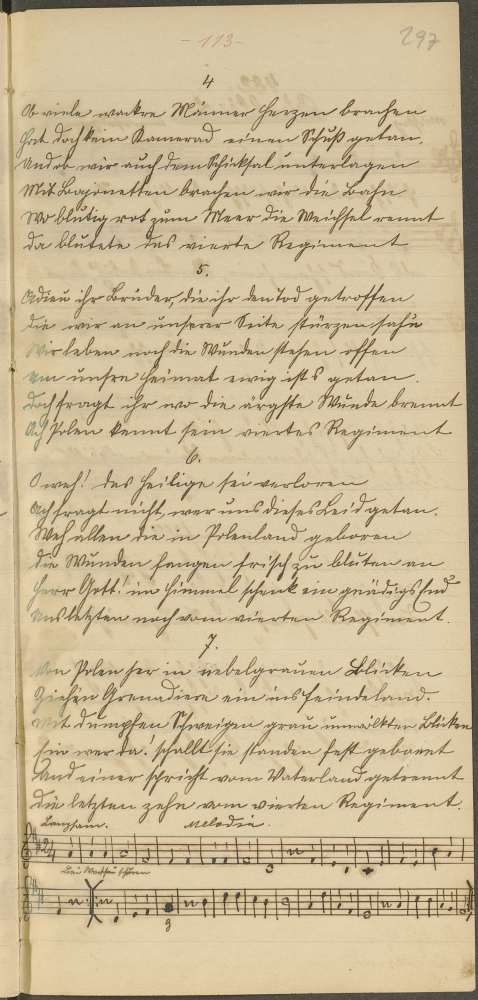 - 113 -
297
4
Ob viele wackre Männer Herzen brachen
Hat doch kein Kamerad einen Schuß getan.
Und ob wir auch dem Schicksal unterlagen
Mit Bajonetten brachen wir die Bahn
Wo blutig rot zum Meer die Weichsel rennt
Da blutete das vierte Regiment
5.
Adieu ihr Brüder, die ihr den Tod getroffen
Die wir an unserer Seite stürzen sah'n
Wir leben noch die Wunden stehen offen
Um unsre Heimat ewig ist's getan.
Doch fragt ihr wo die ärgste Wunde brennt
Ach Polen kennt sein viertes Regiment
6.
O weh! das Heilige sei verloren
Ach fragt nicht, wer uns dieses Leid getan.
Weh allen die in Polenland geboren
Die Wunden fangen frisch zu bluten an
Herr Gott! im Himmel schenk ein gnädigs End
Uns letzten noch vom vierten Regiment.
7.
Von Polen her in nebelgrauen
Ziehen Grenadiere ein ins Feindeland.
Mit dumpfen Schweigen grau umwölkten Blicken
wer da! schallt sie standen fest gebannt
Und einer spricht vom Vaterland getrennt
Die letzten zehn vom vierten Regiment.
Langsam. Melodie.